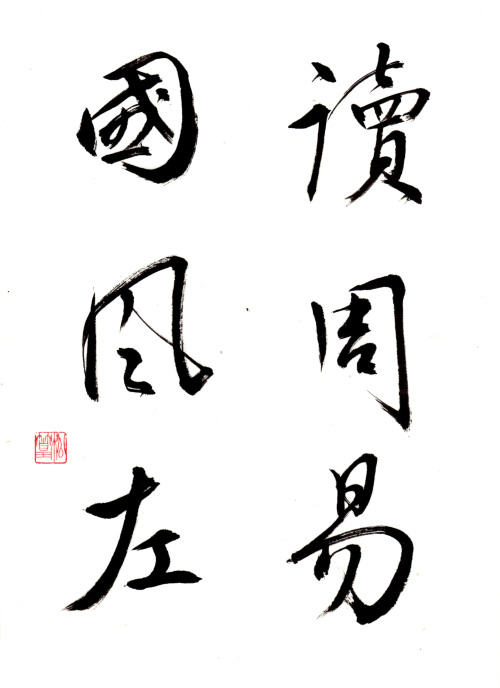 讀周易
國風左